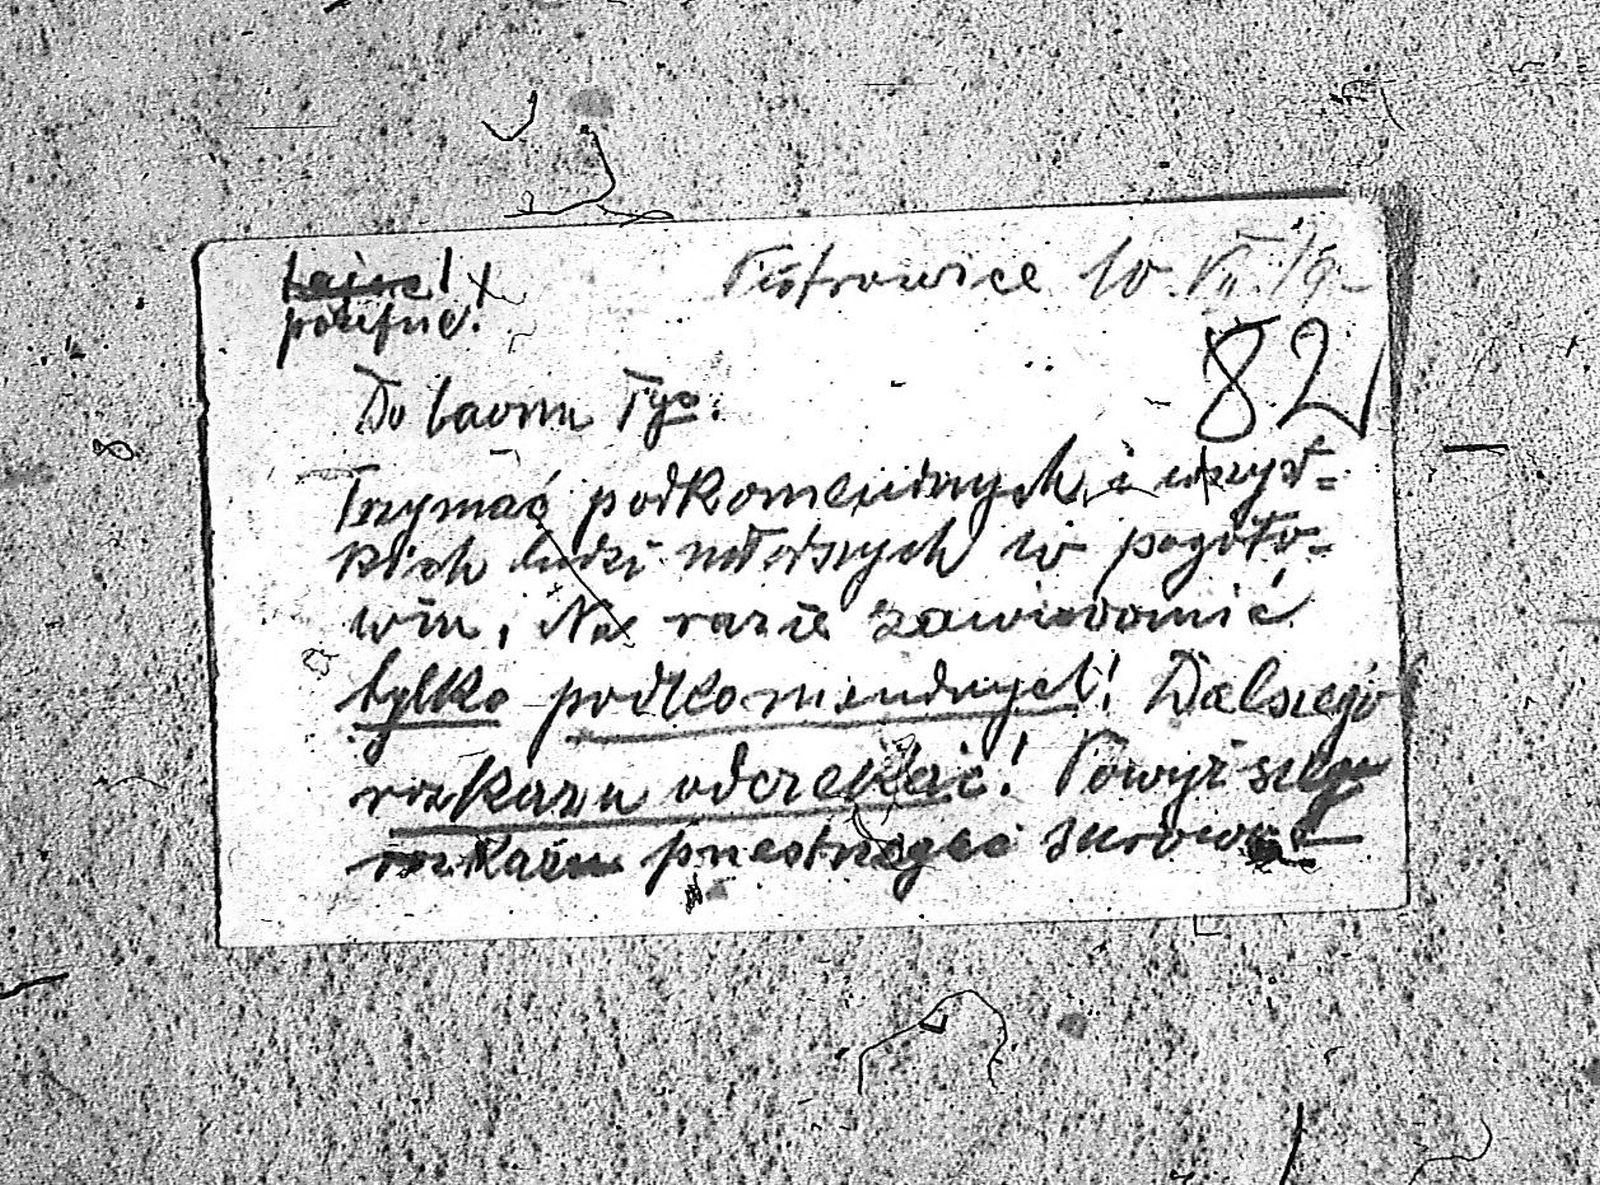 tajne!
poufne!
Piotrowice 10.VII.19-
82
Do baonu Tys.
Trzymać podkomendnych i wszyst=
kich ludzi młodszych w pogoto=
wiu, Na razie zawiadomić
tylko podkomendnych! Dalszego
rozkazu odczekać! Powyższego
rozkazu przestrzegać surowo